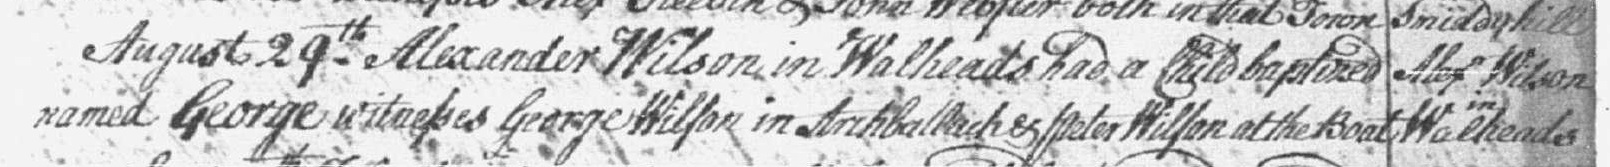 both in that Town Smiddyhill
August 29th Alexander Wilson in Walheads had a Child baptized Alexr Wilson
named George witnesses George Wilson in Archballach & Peter Wilson at the Boat in Walheads